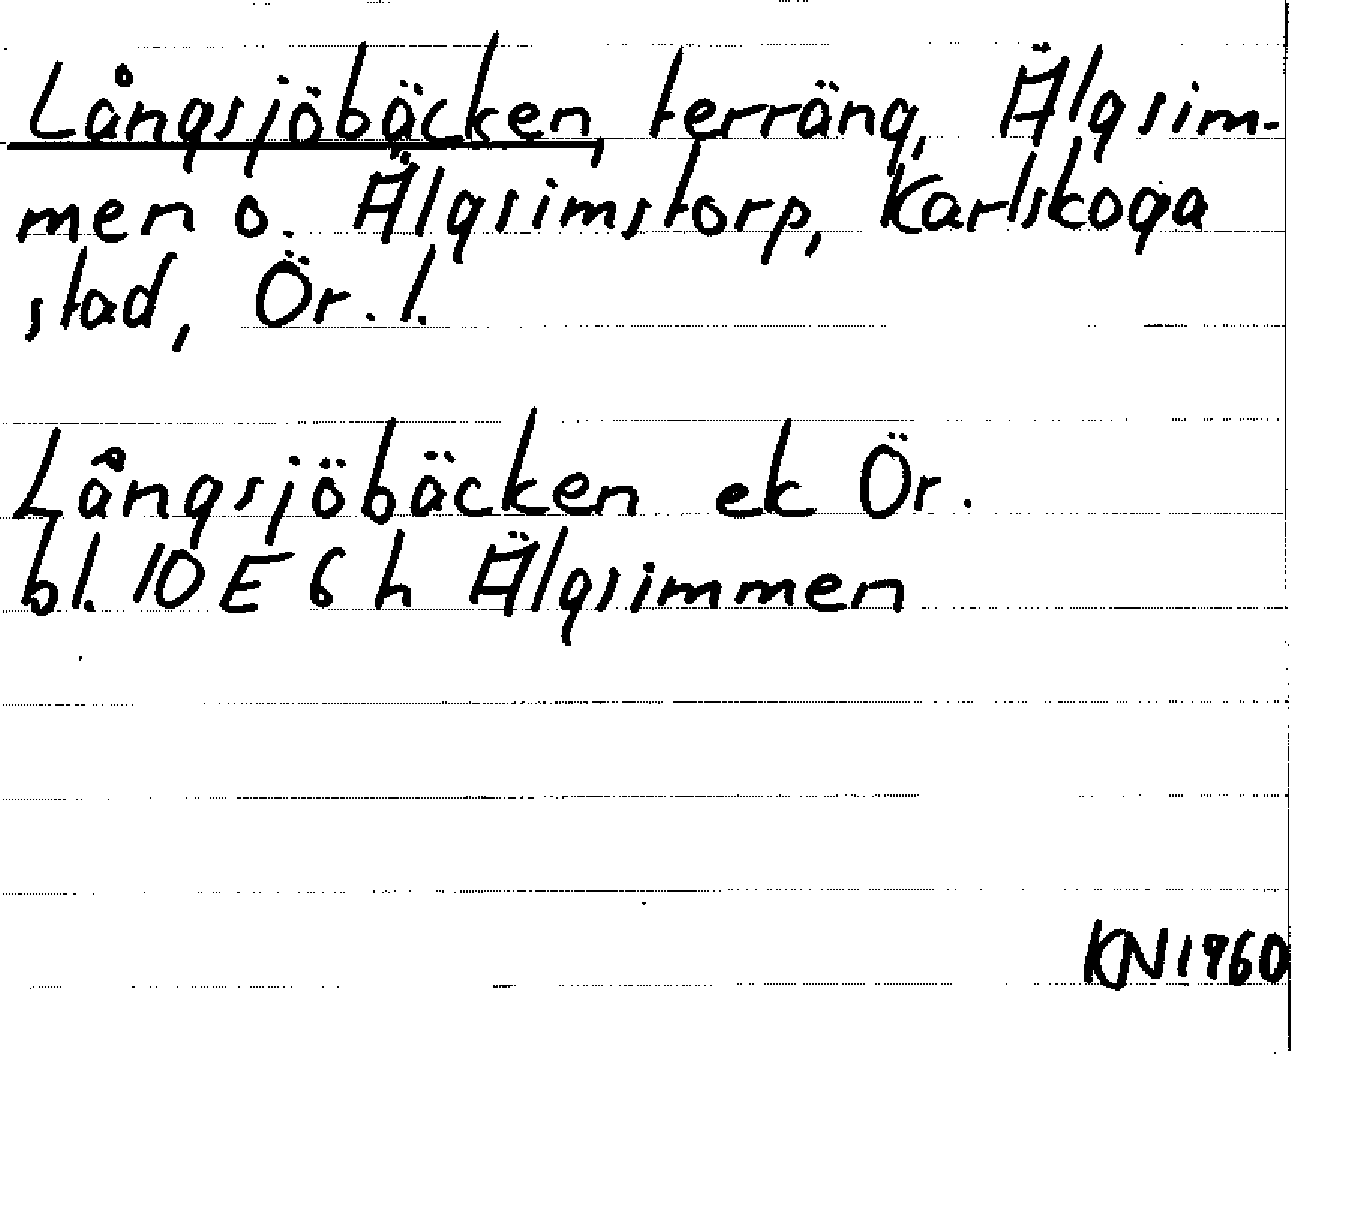 Långsjöbäcken, terräng, Älgsim-
men o. Älgsimstorp, Karlskoga
stad, Ör. l.
Långsjöbäcken ek Ör.
bl. 10 E 6 h Älgsimmen
KN 1960